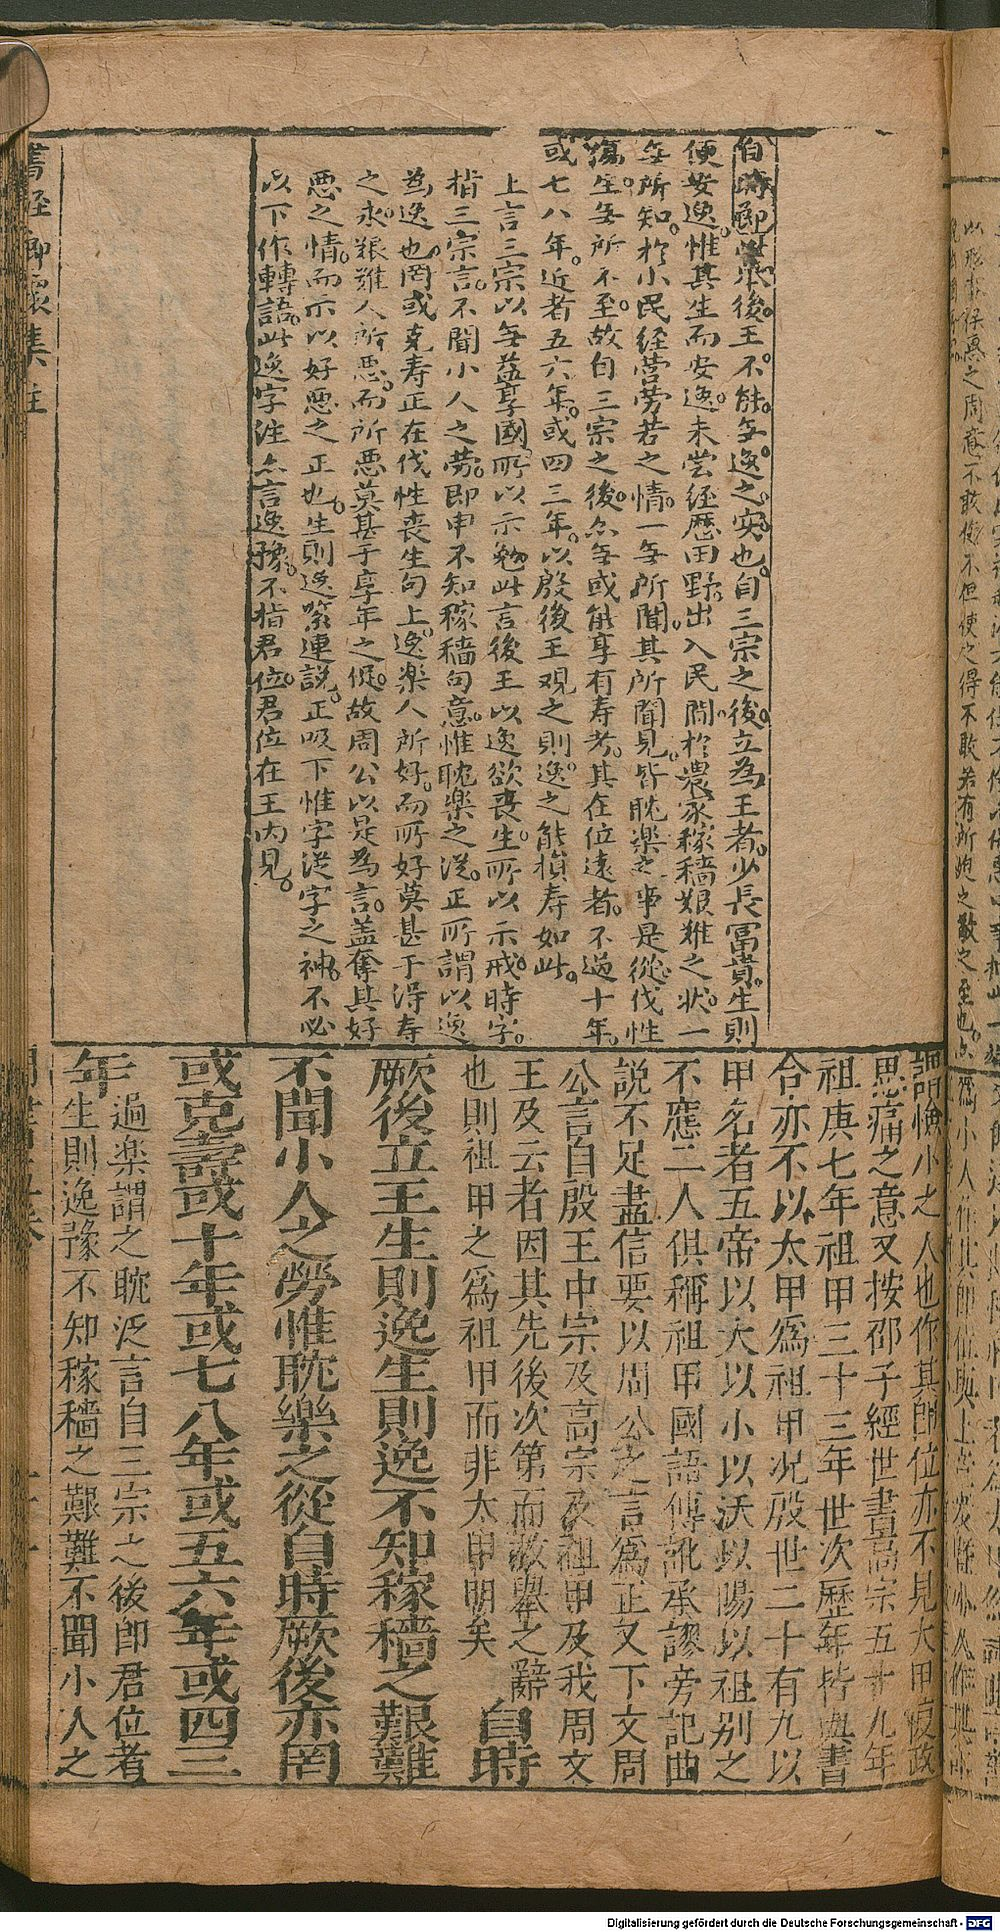 自時即業後王不能无逸之实也自三宗之後立為王者少長冨貴生則
便安逸惟其生而安逸未尝経歴田野出入民間於農家稼穡艱难之状一
无所知於小民経营劳若之情一无所聞其所聞見皆耽楽之事是從伐性
傷生无所不至故自三宗之後亦无或能享有寿考其在位遠者不過十年
或七八年近者五六年或四三年以殷後王观之則逸之能損寿如此
上言三宗以无益享國所以示勉此言後王以逸欲丧生所以示戒時字
指三宗言不聞小人之劳即申不知稼穡句意惟耽楽之从正所謂以逸
為逸也罔或克寿正在伐性丧生句上逸楽人所好而所好莫甚于得寿
之永艱难人所恶而所恶莫甚于享年之促故周公以是為言盖奪其好
恶之情而示以好恶之正也生則逸緊連説正吸下惟字从字之神不必
以下作轉語此逸字注亦言逸豫不指君位君位在王内見
謂憸小之人也作其即位亦不見太甲復政
思痛之意又按邵子經世書高宗五十九年
祖庚七年祖甲三十三年世次歷年皆與書
合亦不以太甲爲祖甲况殷世二十有九以
甲名者五帝以太以小以沃以陽以祖别之
不應二人俱稱祖甲國語傳訛承謬旁記曲
説不足盡信要以周公之言爲正又下文周
公言自殷王中宗及高宗及祖甲及我周文
王及云者因其先後次第而枚舉之辭
也則祖甲之爲祖甲而非太甲明矣
自時
厥後立王生則逸生則逸不知稼穡之艱難
不聞小人之勞惟耽樂之從自時厥後亦罔
或克壽或十年或七八年或五六年或四三
年
過楽謂之耽泛言自三宗之後即君位者
生則逸豫不知稼穡之艱難不聞小人之
Digitalisierung gefördert durch die Deutsche Forschungsgemeinschaft - DFG